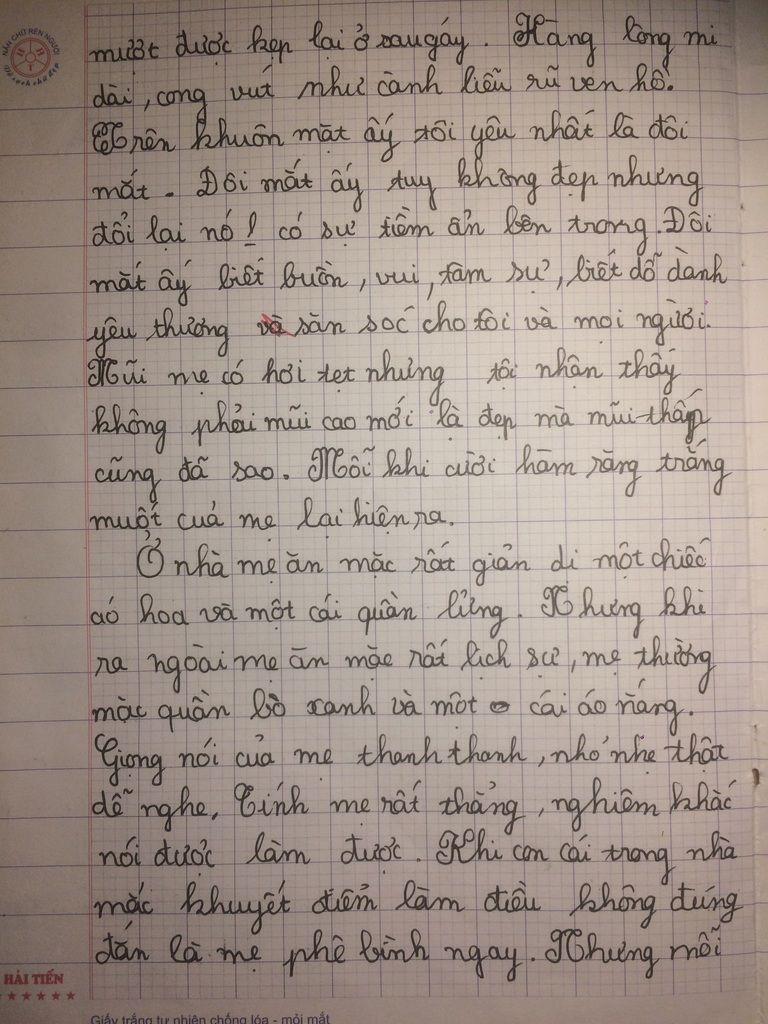 NẮN CHỮ RÈN NGƯỜI
mượt được kẹp lại ở sau gáy. Hàng lông mi
dài, cong vút như cành liễu rũ ven hồ.
Trên khuôn mặt ấy tôi yêu nhất là đôi
mắt. Đôi mắt ấy tuy không đẹp nhưng
đổi lại nó ! có sự tiềm ẩn bên trong. Đôi
mắt ấy biết buồn, vui, tâm sự, biết dỗ dành
yêu thương và săn soc cho tôi và mọi người.
Mũi mẹ có hơi tẹt nhưng tôi nhận thấy
không phải mũi cao mới là đẹp mà mũi thấp
cũng đã sao. Mỗi khi cười hàm răng trắng
muốt cuả mẹ lại hiện ra.
Ở nhà mẹ ăn mặc rất giản dị một chiếc
aó hoa và một cái quần lửng. Nhưng khi
ra ngoài mẹ ăn mặc rất lịch sự, mẹ thường
mặc quần bò xanh và một cái áo nắng.
Giọng nói của mẹ thanh thanh, nhỏ nhẹ thật
dễ nghe. Tính mẹ rất thẳng, nghiêm khắc
nói được làm được. Khi con cái trong nhà
mắc khuyết điểm làm điều không đúng
đắn là mẹ phê bình ngay. Nhưng mỗi
HẢI TIẾN
Giấy trắng tự nhiên chống lóa - mỏi mắt